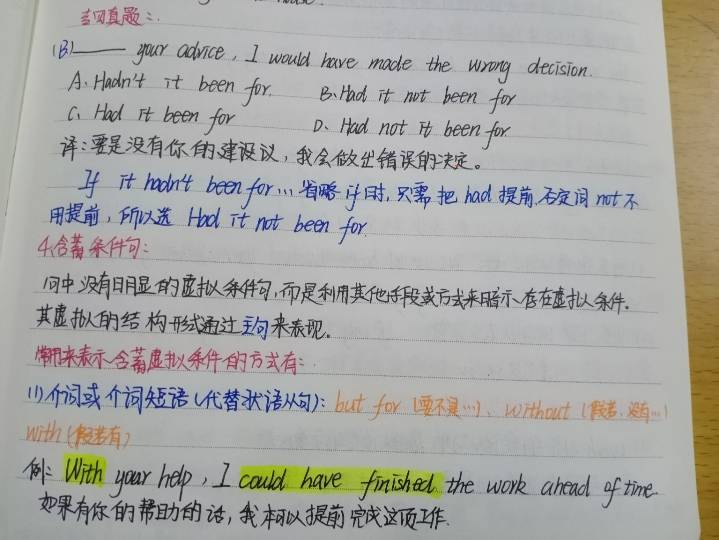 专四真题:
(B) ____ your advice, I would have made the wrong decision.
A. Hadn't it been for. B. Had it not been for
C. Had it been for D. Had not it been for.
译:要是没有你的建设议,我会做出错误的决定。
If it hadn't been for... 省略if时,只需把had提前,否定词not不
用提前,所以选 Had it not been for.
4.含蓄条件句:
句中没有明显的虚拟条件句,而是利用其他手段或方式来暗示存在虚拟条件.
其虚拟的结构形式通过主句来表现.
常用来表示含蓄虚拟条件的方式有:
(1)介词或介词短语(代替状语从句): but for (要不是…)、without (假若、没有…)
with (假若有)
例: With your help, I could have finished the work ahead of time.
如果有你的帮助的话,我本可以提前完成这项工作.